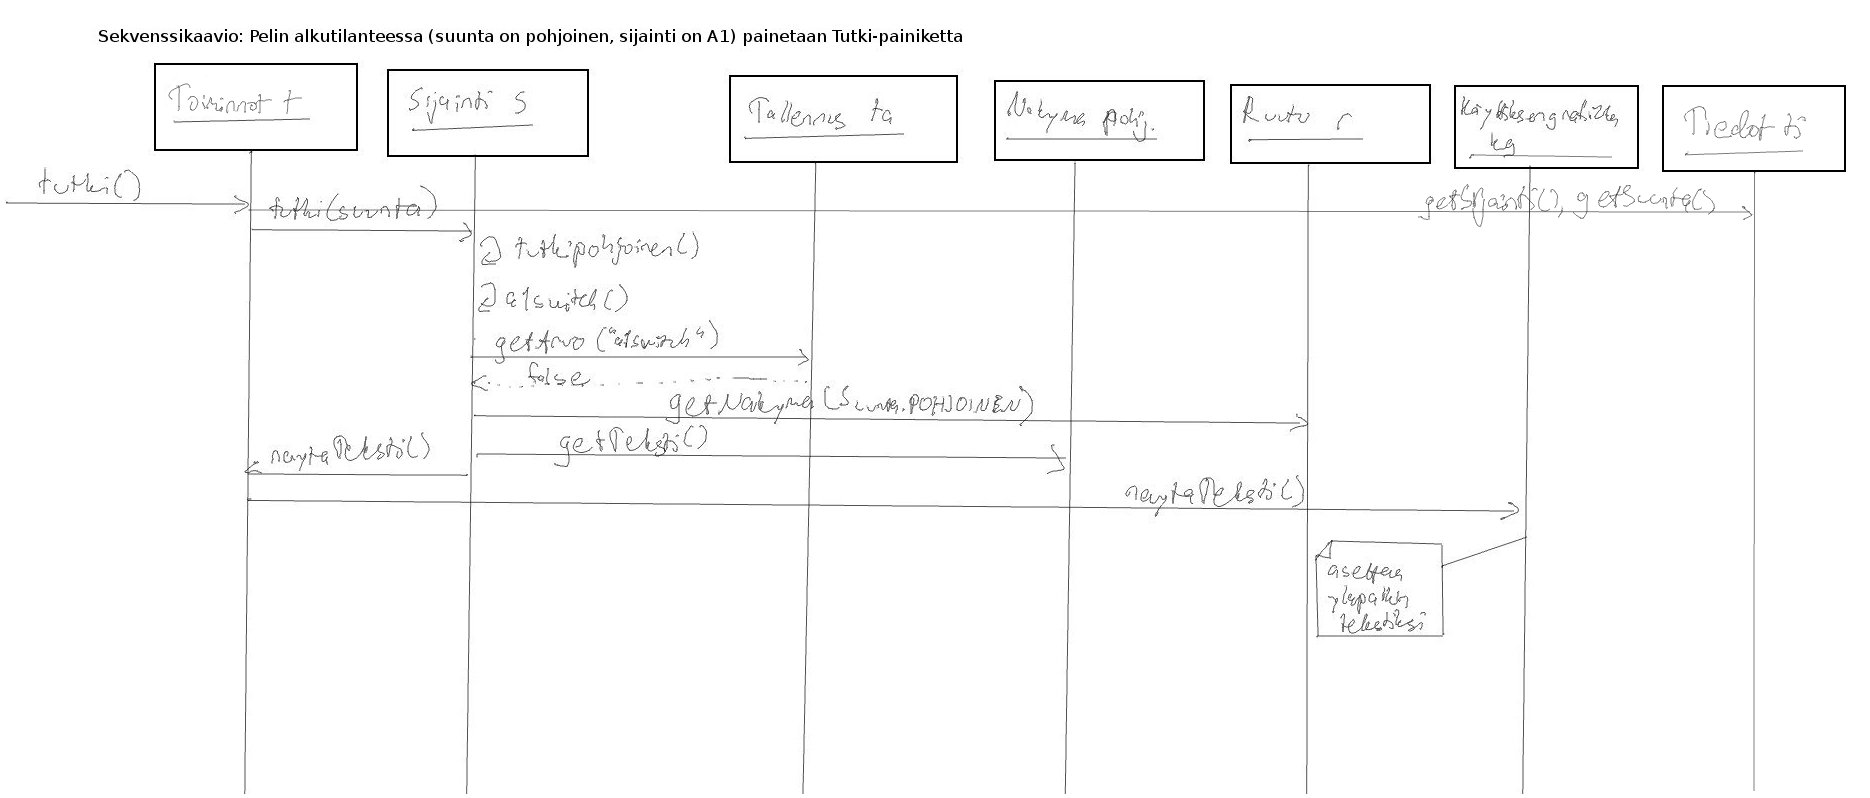 Sekvenssikaavio: Pelin alkutilanteessa (suunta on pohjoinen, sijainti on A1) painetaan Tutki-painiketta
Toiminnot t
Sijainti s
Tallennus ta
Nakyma pohj.
Ruutu r
kg
Tiedot ti
tutki()
tutki(suunta)
getSijainti(), getSuunta()
tutkipohjoinen()
a1switch()
getArvo ("a1switch")
false
getNakyma (Suunta.POHJOINEN)
getTeksti()
naytaTeksti()
naytaTeksti()
asettaa
tekstiksi